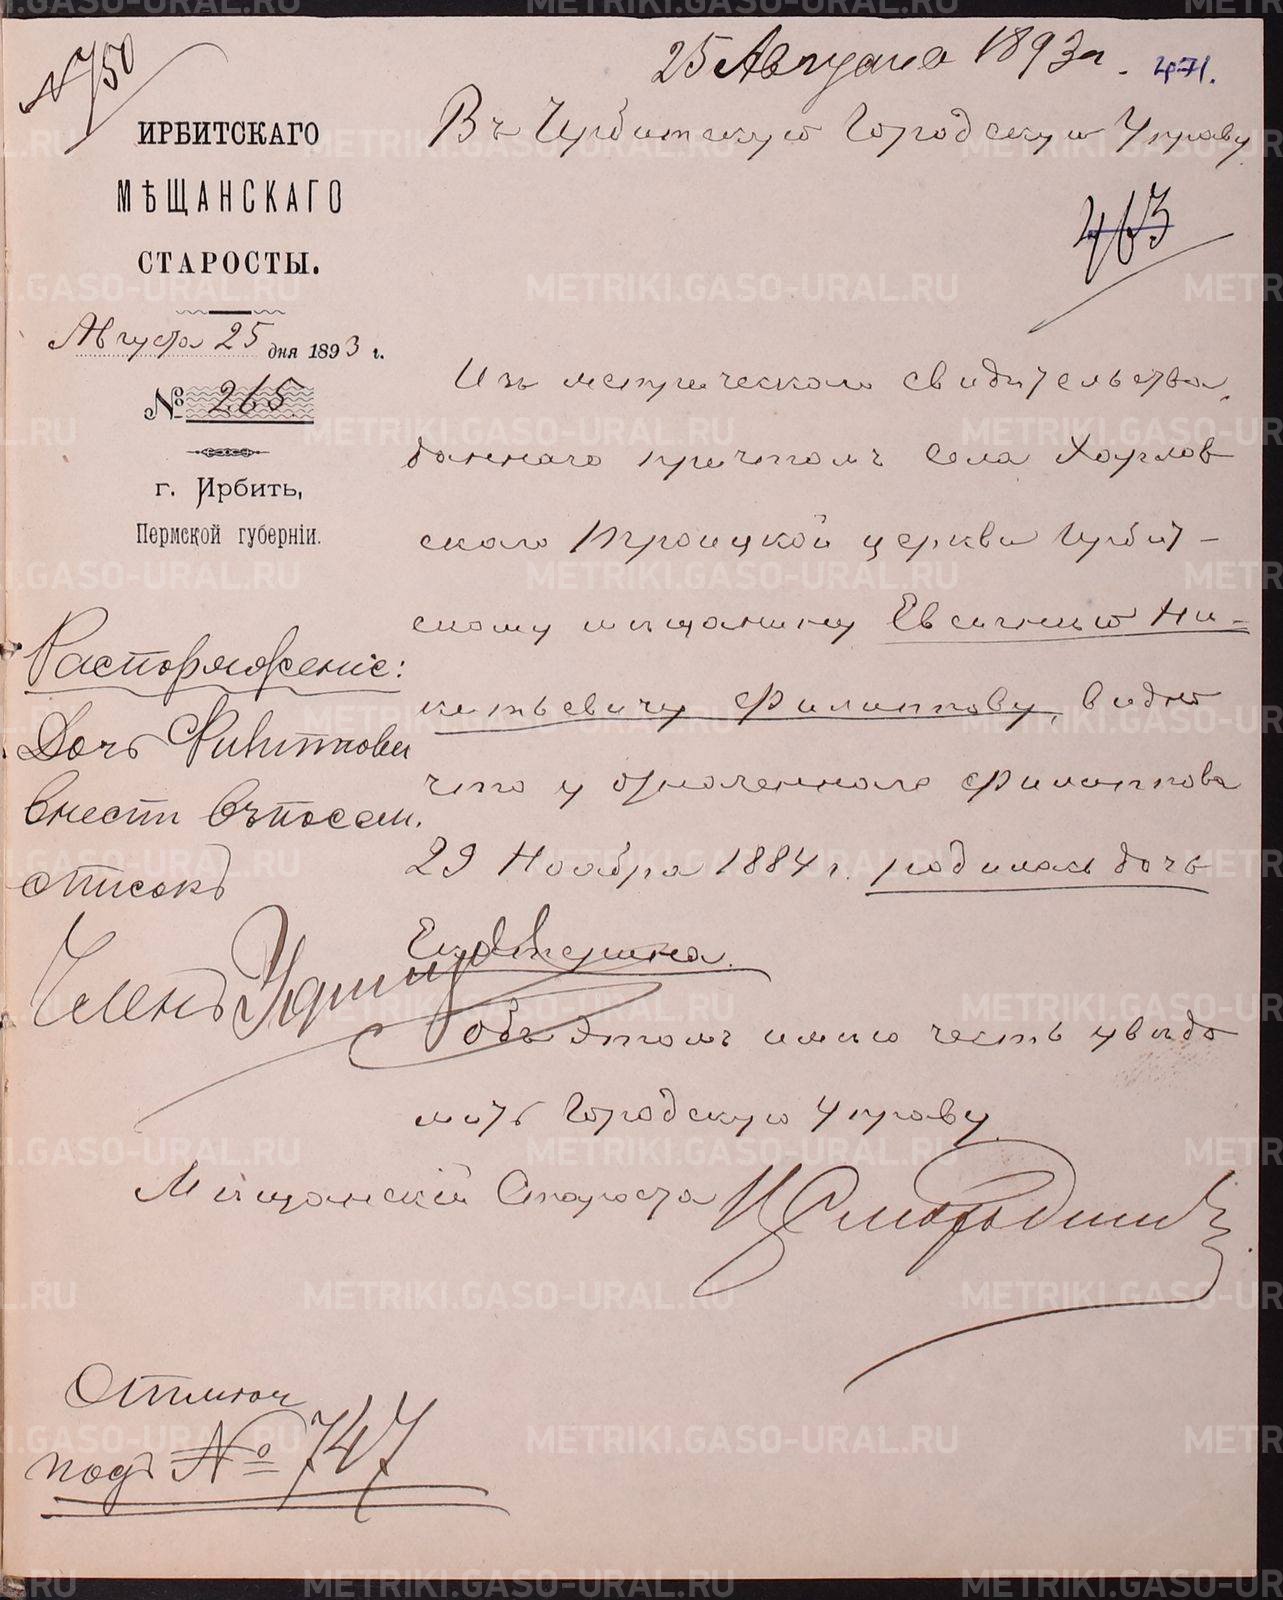 № 750
25 Августа 1893 г. 471.
ИРБИТСКАГО
МѢЩАНСКАГО
СТАРОСТЫ.
Августа 25 дня 1893 г.
№ 265
г. Ирбить,
Пермской губерніи.
Въ Ирбитскую Городскую Управу
463
Изъ метрическаго свидѣтельства,
даннаго причтомъ села Харлов
скаго Троицкой церкви Ирбит-
скому мѣщанину Евгенію Ни-
китьевичу Филиппову, видно
что у означеннаго Филиппова
29 Ноября 1884 г. родилась дочь
Екатерина.
Объ этомъ имѣю честь увѣдо
мить Городскую Управу.
Мѣщанскій Староста И Смородин
Распоряженіе:
Дочь Филиппова
внести въ посем.
списокъ
Членъ
Отмѣтки
подъ № 747
METRIKI.GASO-URAL.RU